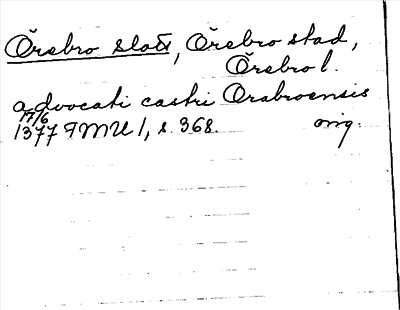 Örebro slott, Örebro stad,
Örebro l.
advocati castri Orabroensis
17/6
1377 FMU 1, s. 368. orig.